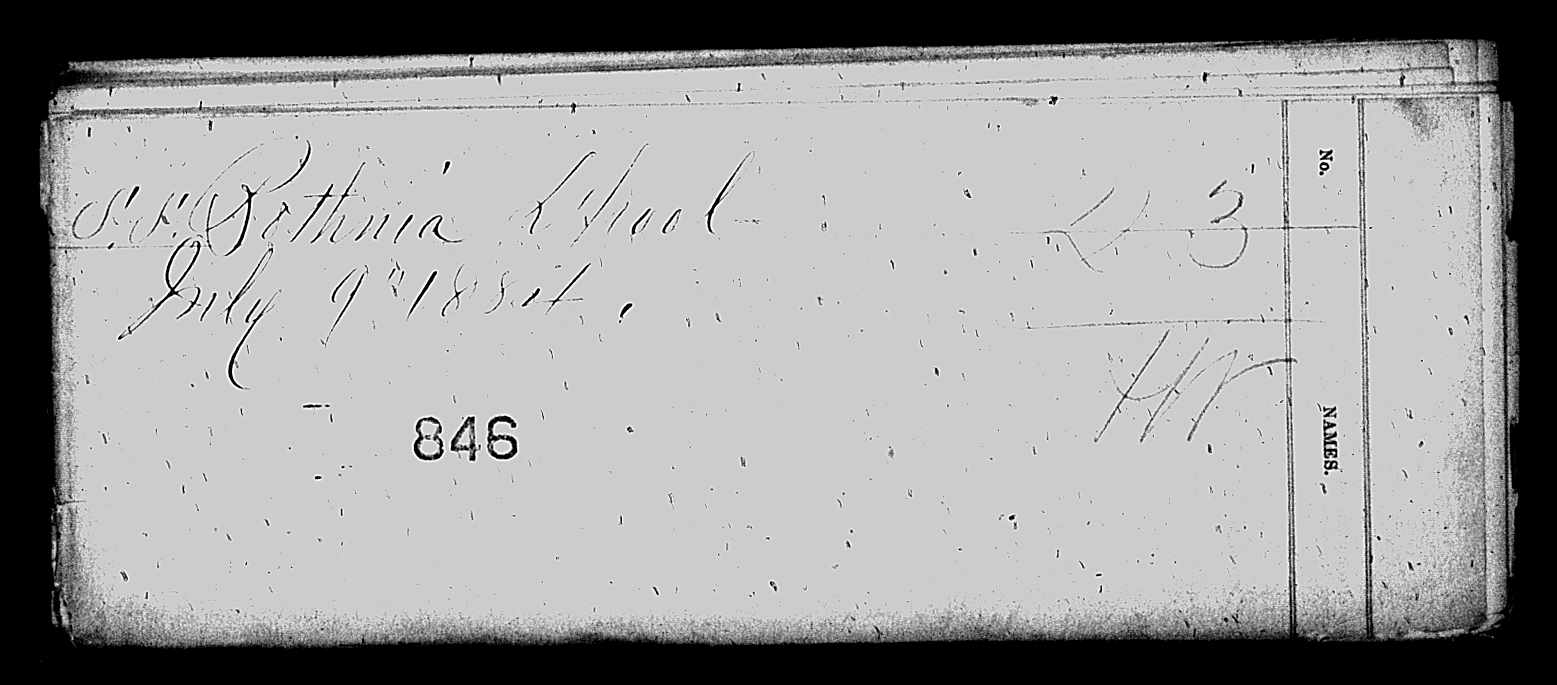 S.S. Bothnia L'pool
July 9th 1884.
3
846
No.
NAMES.